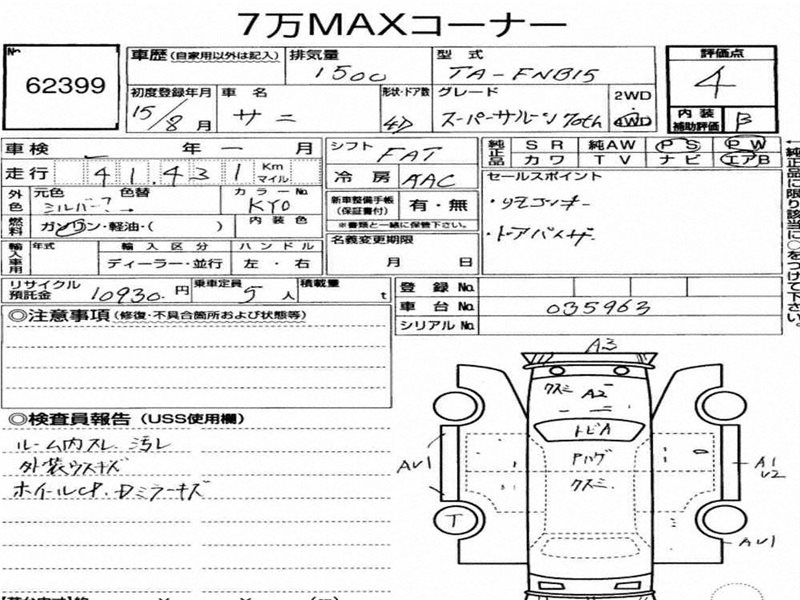 7万MAXコーナー
No. 62399
車歴 (自家用以外は記入) 排気量 1500 型式 TA-FNB15
初度登録年月 15/8月 車名 サニー 形状・ドア数 4D グレード スーパーサルーン70th 2WD 4WD
評価点 4
内装補助評価 B
車検 年 ー 月 シフト FAT 純正品 SR 純AW PS PW
カワ TV ナビ エアB
走行 41,431 Km マイル 冷房 AAC セールスポイント
外色 元色 シルバー? 色替 → カラーNo. KY0
・リモコンキー
燃料 ガソリン・軽油・( ) 内装色
新車整備手帳(保証書付) 有・無
※書類と一緒に保管下さい。
・ドアバイザー
輸入車用 年式 輸入区分 ディーラー・並行 ハンドル 左・右
名義変更期限 月 日
リサイクル預託金 10930円 乗車定員 5人 積載量 t
登録No.
車台No. 035963
シリアルNo.
←純正品に限り該当に○をつけて下さい。
◎注意事項 (修復・不具合箇所および状態等)
◎検査員報告 (USS使用欄)
ルーム内スレ 汚レ
外装ウスキズ
ホイールCP.Dミラーキズ
A3
クスミ A2
トビA
Pハゲ
クスミ
AU1
A1
U2
T
AU1